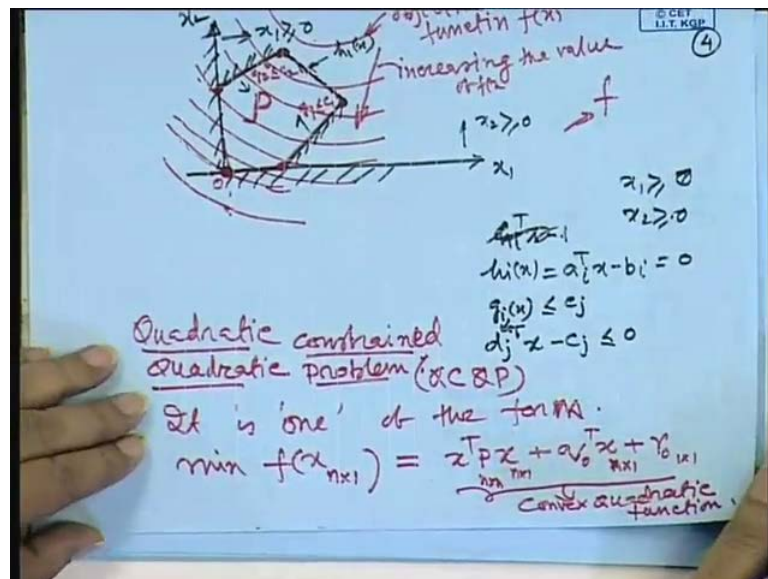 © CET
I.I.T. KGP
4
x₂
x₁ ≥ 0
functin f(x)
hᵢ(x)
increasing the value
P
f
x₂ ≥ 0
x₁
0
x₁ ≥ 0
x₂ ≥ 0
hᵢ(x) = aᵢᵀx - bᵢ = 0
gⱼ(x) ≤ cⱼ
dⱼᵀx - cⱼ ≤ 0
Quadratic constrained
Quadratic Problem (QCQP)
It is 'one' of the form.
min f(x n×1) = xᵀPx + q₀ᵀx + r₀ 1×1
n×n n×1 n×1
Convex quadratic
function.